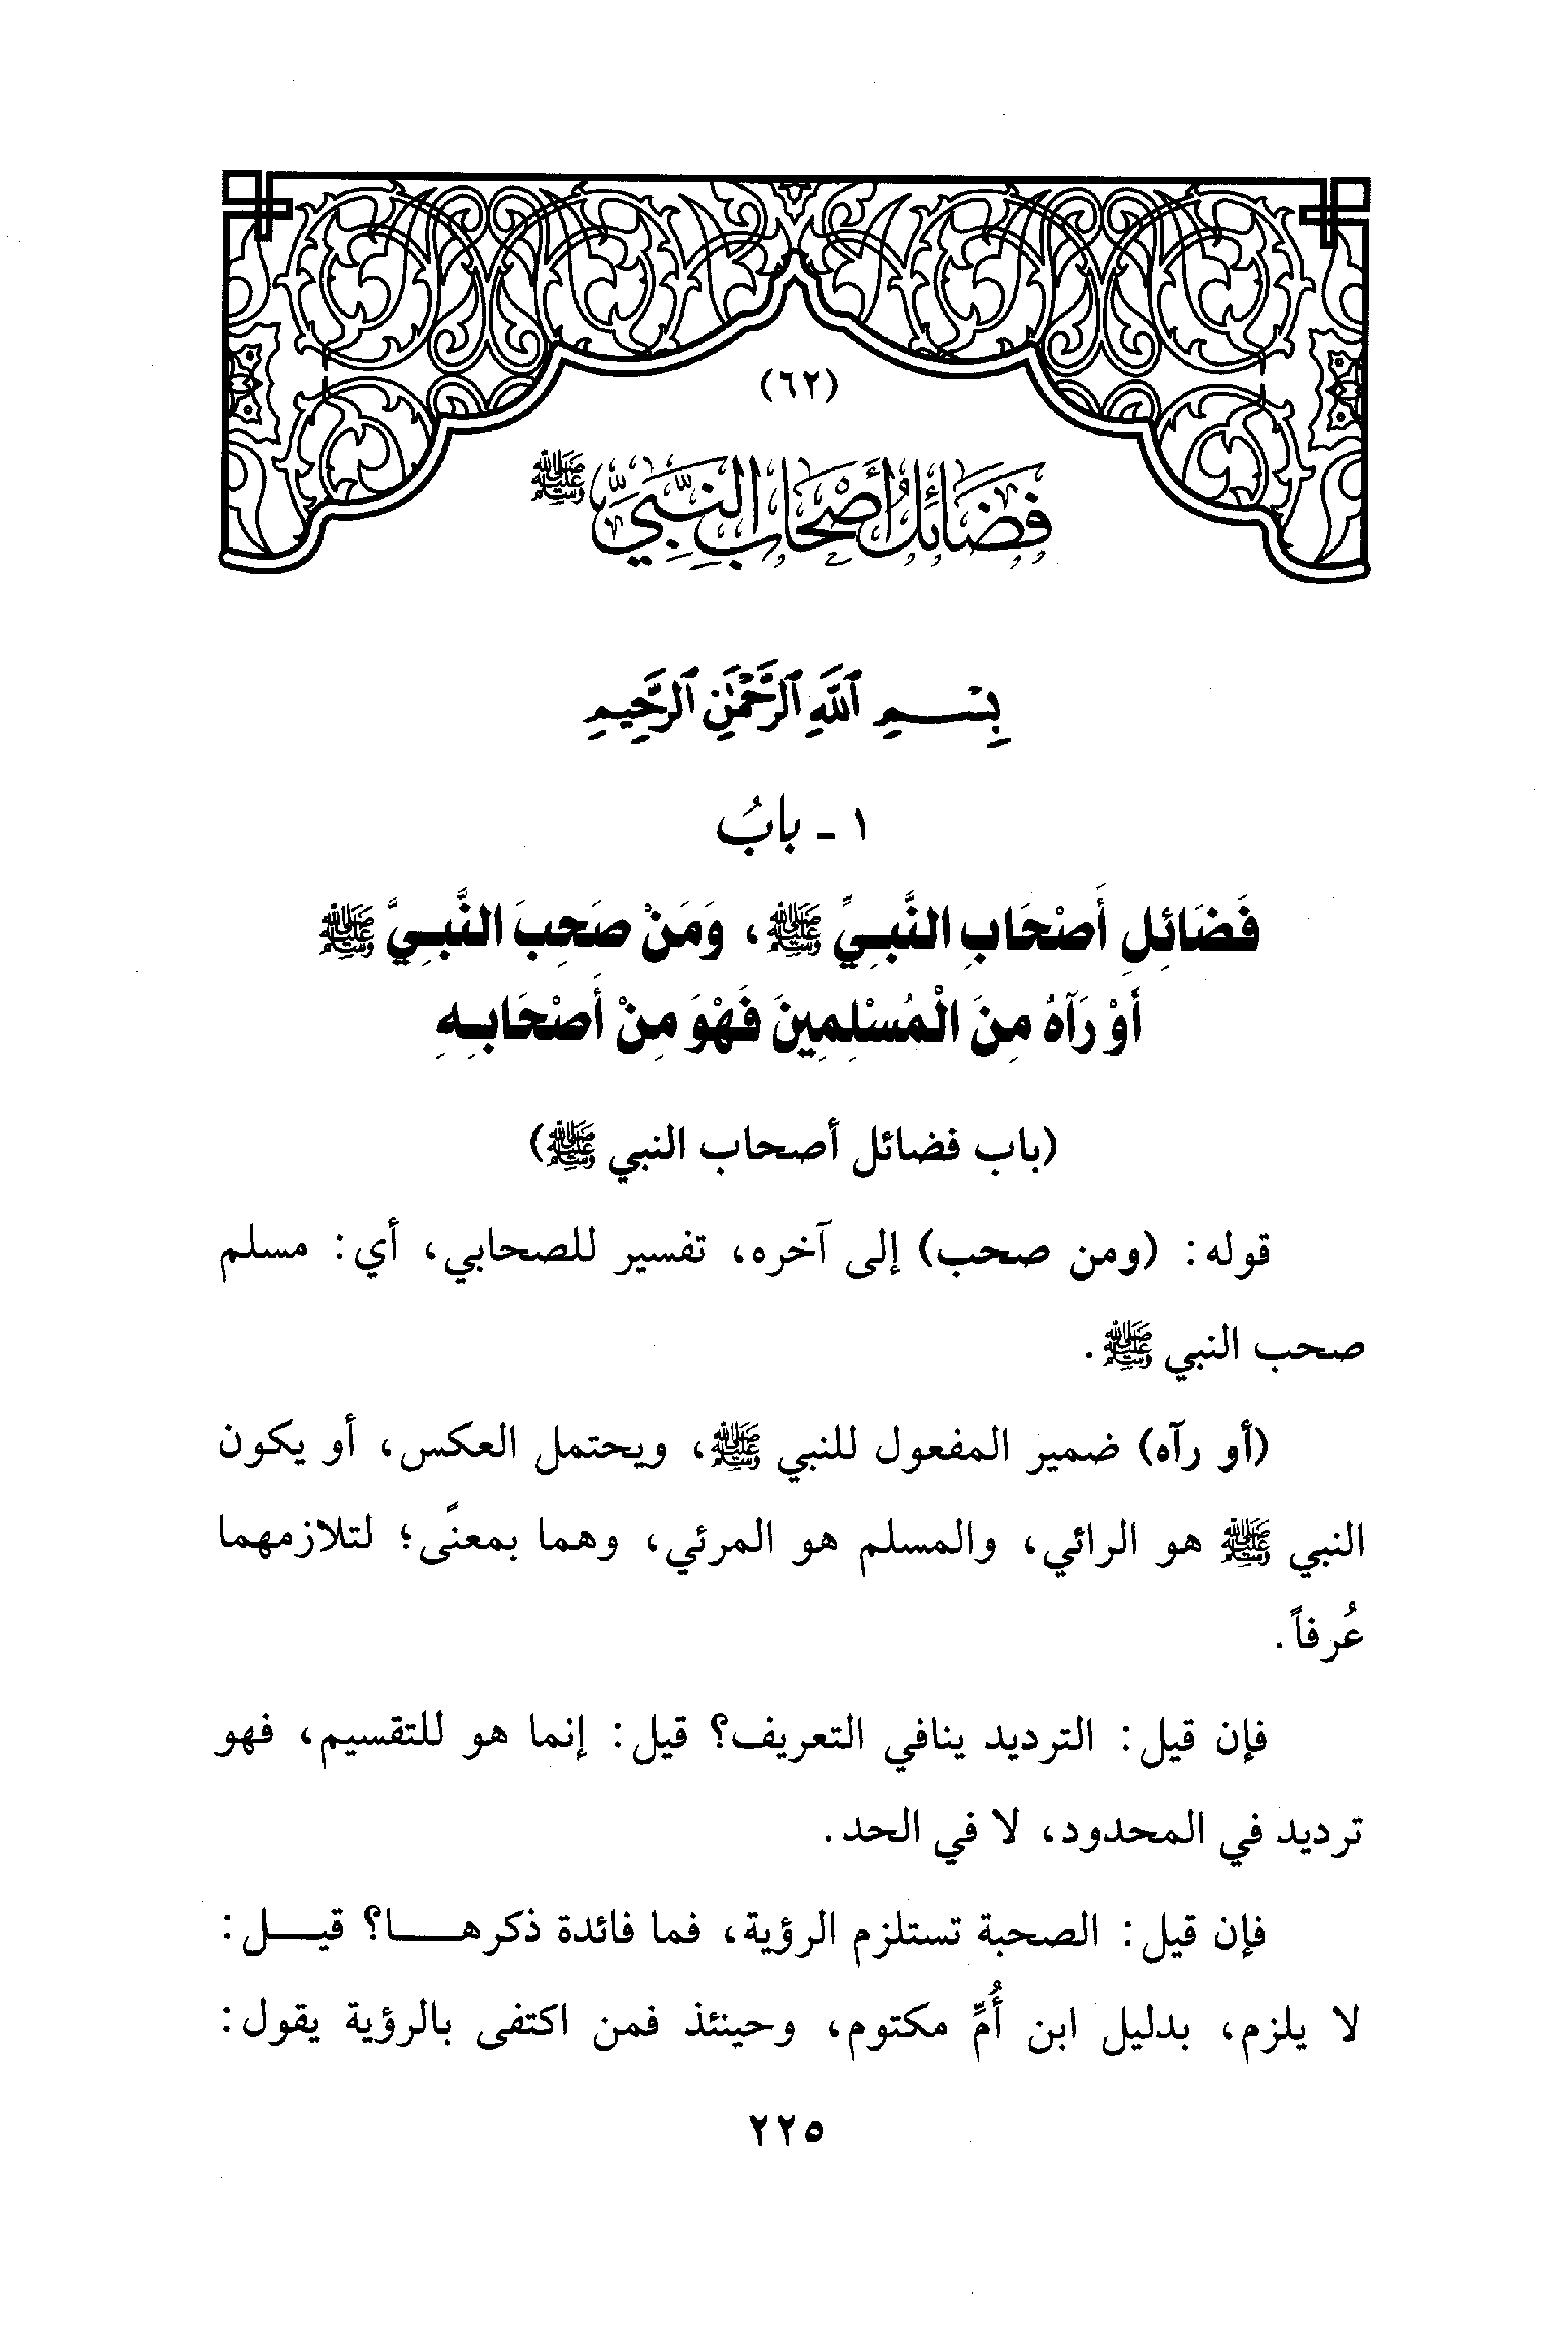 (٦٢)
فَضَائِلُ أَصْحَابِ النَّبِيِّ ﷺ
بِسْمِ ٱللَّهِ ٱلرَّحْمَٰنِ ٱلرَّحِيمِ
١ ـ بابُ
فَضَائِلِ أَصْحَابِ النَّبِيِّ ﷺ، وَمَنْ صَحِبَ النَّبِيَّ ﷺ
أَوْ رَآهُ مِنَ الْمُسْلِمِينَ فَهْوَ مِنْ أَصْحَابِهِ
(باب فضائل أصحاب النبي ﷺ)
قوله: (ومن صحب) إلى آخره، تفسير للصحابي، أي: مسلم
صحب النبي ﷺ.
(أو رآه) ضمير المفعول للنبي ﷺ، ويحتمل العكس، أو يكون
النبي ﷺ هو الرائي، والمسلم هو المرئي، وهما بمعنًى؛ لتلازمهما
عُرفاً.
فإن قيل: الترديد ينافي التعريف؟ قيل: إنما هو للتقسيم، فهو
ترديد في المحدود، لا في الحد.
فإن قيل: الصحبة تستلزم الرؤية، فما فائدة ذكرهـــا؟ قيــل:
لا يلزم، بدليل ابن أُمِّ مكتوم، وحينئذ فمن اكتفى بالرؤية يقول:
٢٢٥